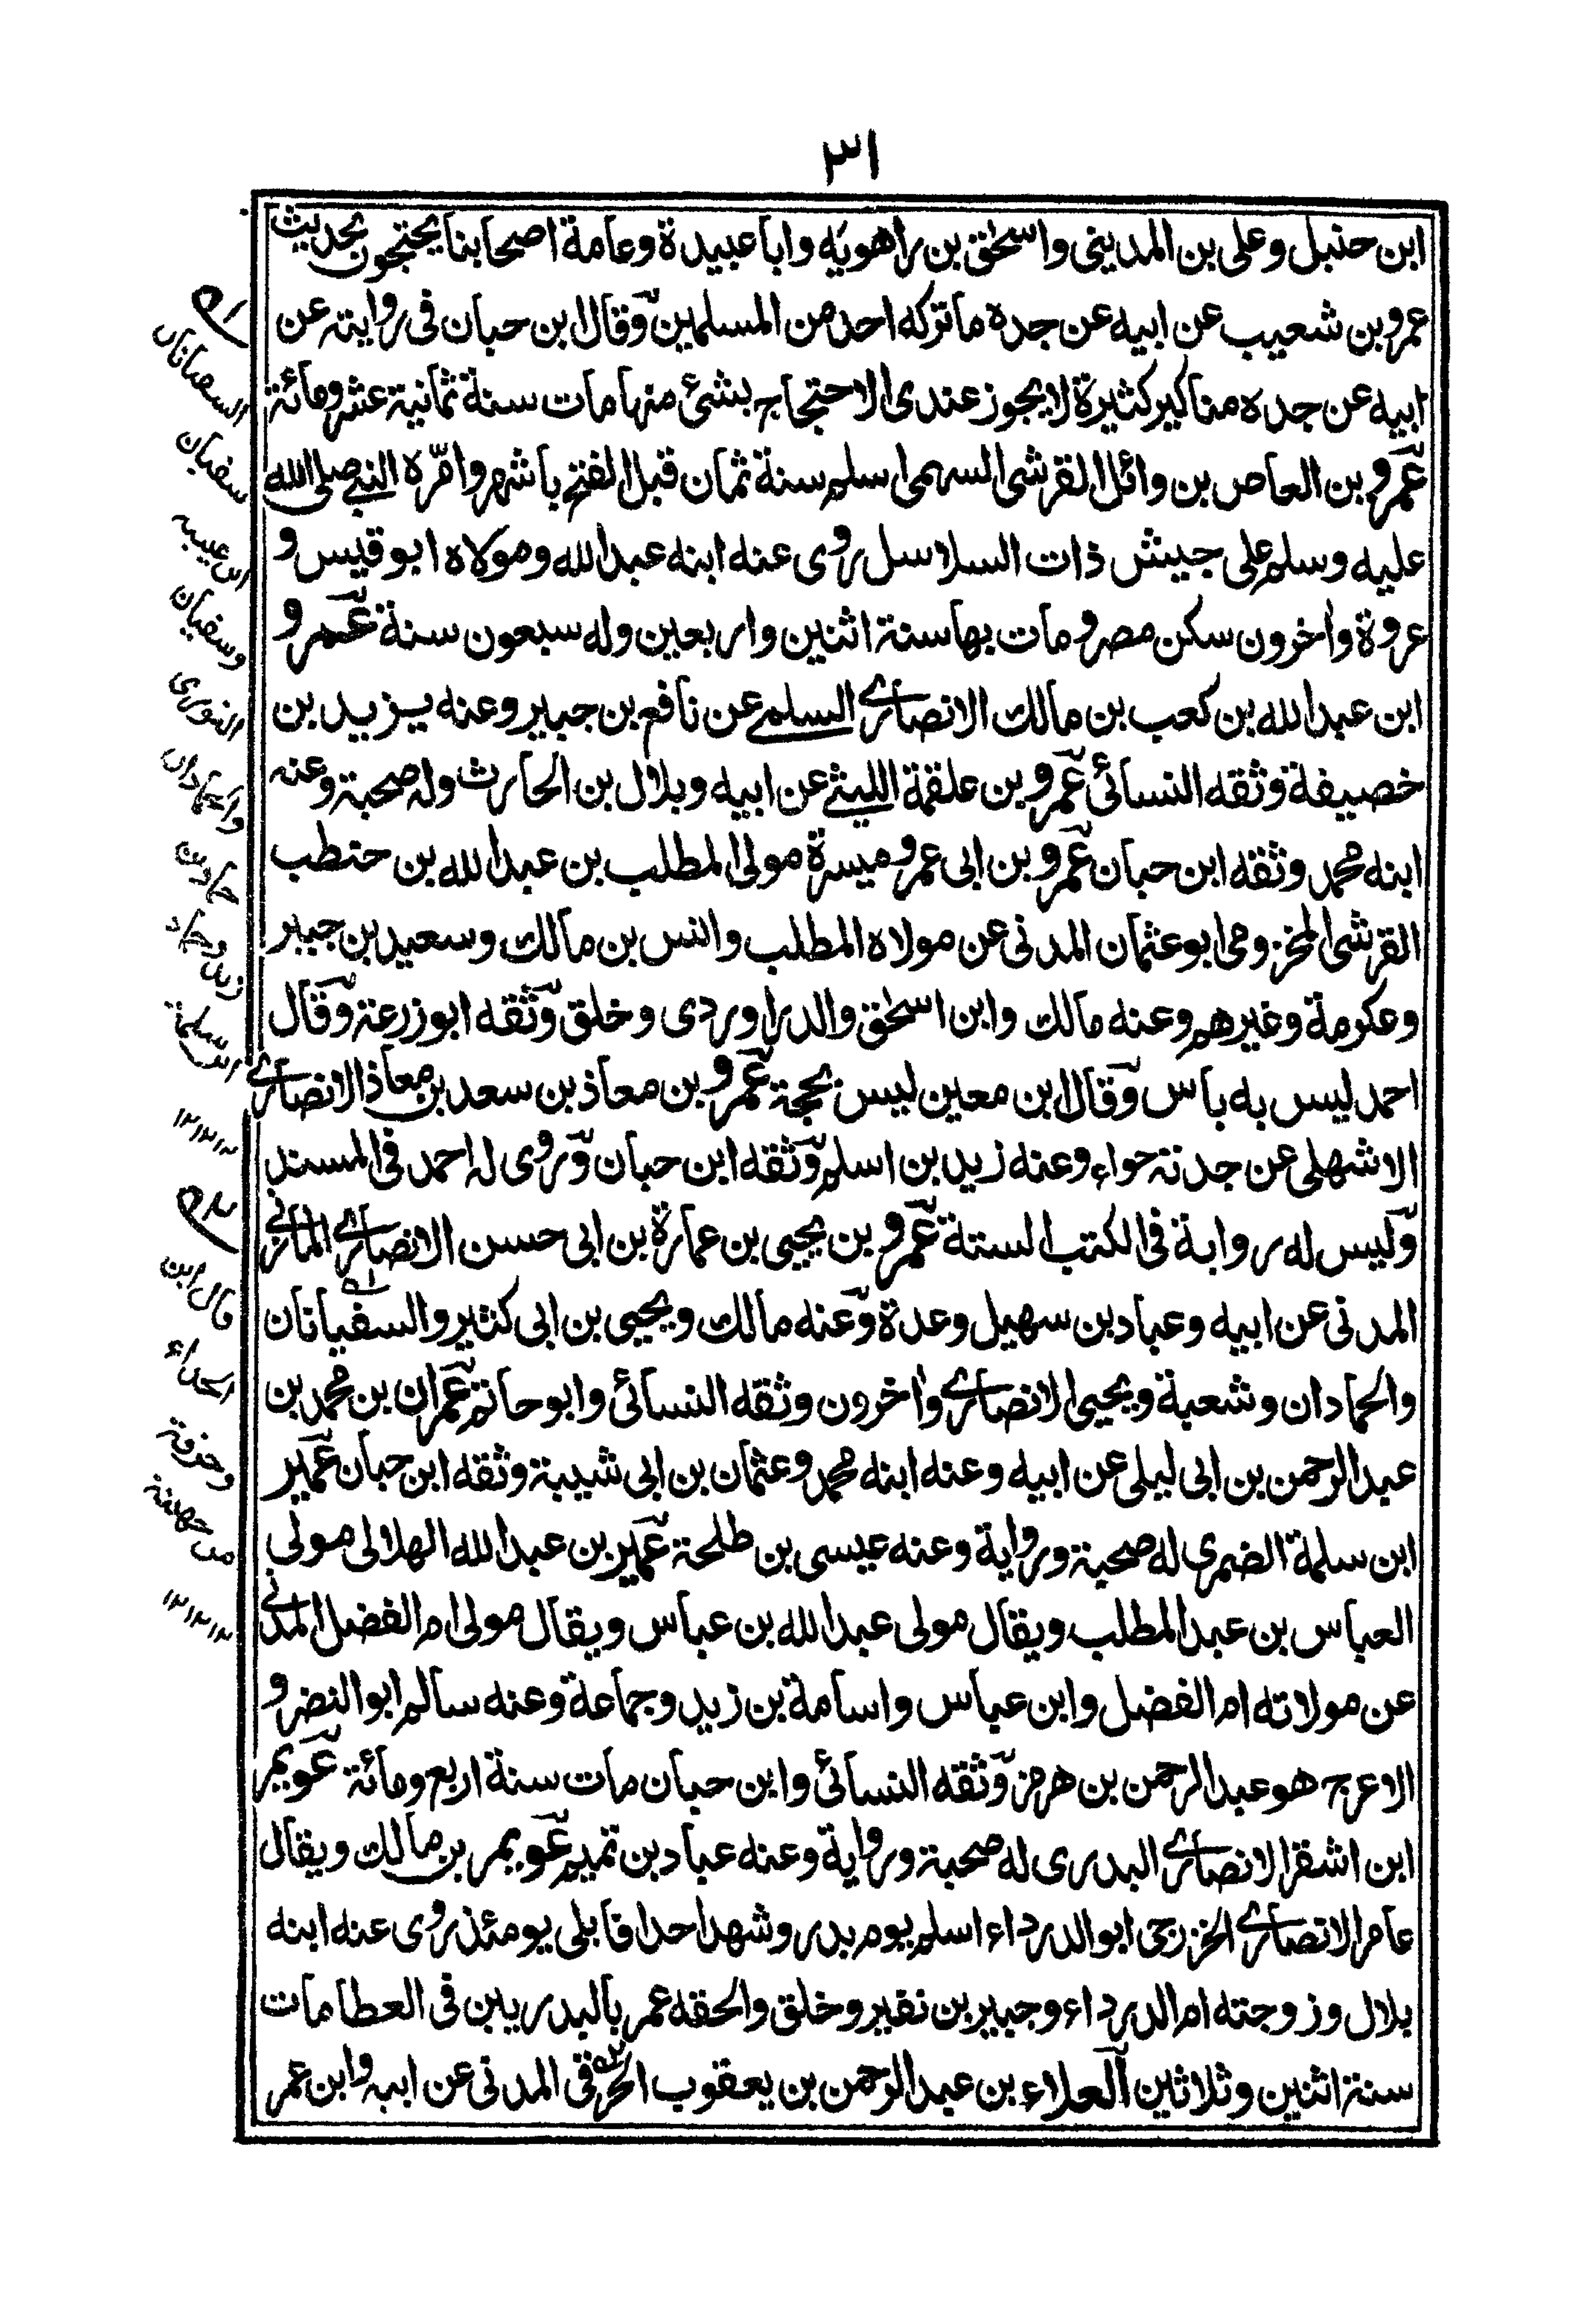 ٣١
ابن حنبل وعلى بن المدينى واسحٰق بن راهويه وابا عبيدة وعامة اصحابنا يحتجون بحديث
عمرو بن شعيب عن ابيه عن جده ما تركه احد من المسلمين وقال ابن حبان فى روايته عن
ابيه عن جده مناكير كثيرة لا يجوز عندى الاحتجاج بشئ منها مات سنة ثمانية عشر ومائة
عمرو بن العاص بن وائل القرشى السهمى اسلم سنة ثمان قبل الفتح باشهر وامّره النبى صلى الله
عليه وسلم على جيش ذات السلاسل روى عنه ابنه عبد الله ومولاه ابو قيس و
عروة واٰخرون سكن مصر ومات بها سنة اثنين واربعين وله سبعون سنة عمرو
ابن عبد الله بن كعب بن مالك الانصارى السلمى عن نافع بن جبير وعنه يزيد بن
خصيفة وثقه النسائى عمرو بن علقمة الليثى عن ابيه وبلال بن الحارث وله صحبة وعنه
ابنه محمد وثقه ابن حبان عمرو بن ابى عمرو ميسرة مولى المطلب بن عبد الله بن حنطب
القرشى المخزومى ابو عثمان المدنى عن مولاه المطلب وانس بن مالك وسعيد بن جبير
وعكرمة وغيرهم وعنه مالك وابن اسحٰق والدراوردى وخلق وثقه ابو زرعة وقال
احمد ليس به باس وقال ابن معين ليس بحجة عمرو بن معاذ بن سعد بن معاذ الانصارى
الاشهلى عن جدته حواء وعنه زيد بن اسلم وثقه ابن حبان وروى له احمد فى المسند
وليس له رواية فى الكتب الستة عمرو بن يحيى بن عمارة بن ابى حسن الانصارى المازنى
المدنى عن ابيه وعباد بن سهيل وعدة وعنه مالك ويحيى بن ابى كثير والسفيانان
والحمادان وشعبة ويحيى الانصارى واٰخرون وثقه النسائى وابو حاتم عمران بن محمد بن
عبد الرحمن بن ابى ليلى عن ابيه وعنه ابنه محمد وعثمان بن ابى شيبة وثقه ابن حبان عمير
ابن سلمة الضمرى له صحبة ورواية وعنه عيسى بن طلحة عمير بن عبد الله الهلالى مولى
العباس بن عبد المطلب ويقال مولى عبد الله بن عباس ويقال مولى ام الفضل المدنى
عن مولاته ام الفضل وابن عباس واسامة بن زيد وجماعة وعنه سالم ابو النضر و
الاعرج هو عبد الرحمن بن هرمز وثقه النسائى وابن حبان مات سنة اربع ومائة عويمر
ابن اشقر الانصارى البدرى له صحبة ورواية وعنه عباد بن تميم عويمر بن مالك ويقال
عامر الانصارى الخزرجى ابو الدرداء اسلم يوم بدر وشهد احدا فابلى يومئذ روى عنه ابنه
بلال وزوجته ام الدرداء وجبير بن نفير وخلق والحقه عمر بالبدريين فى العطا مات
سنة اثنين وثلاثين العلاء بن عبد الرحمن بن يعقوب الحرقى المدنى عن ابيه وابن عمر
السفيانان
سفيان
ابن عيينه
وسفيان
الثورى
والحمادان
حماد بن
زيد وحماد
ابن سلمة
١٢١٢١٢
قال ابن
الحذاء
وحرقة
من جهينة
١٢١٢١٢